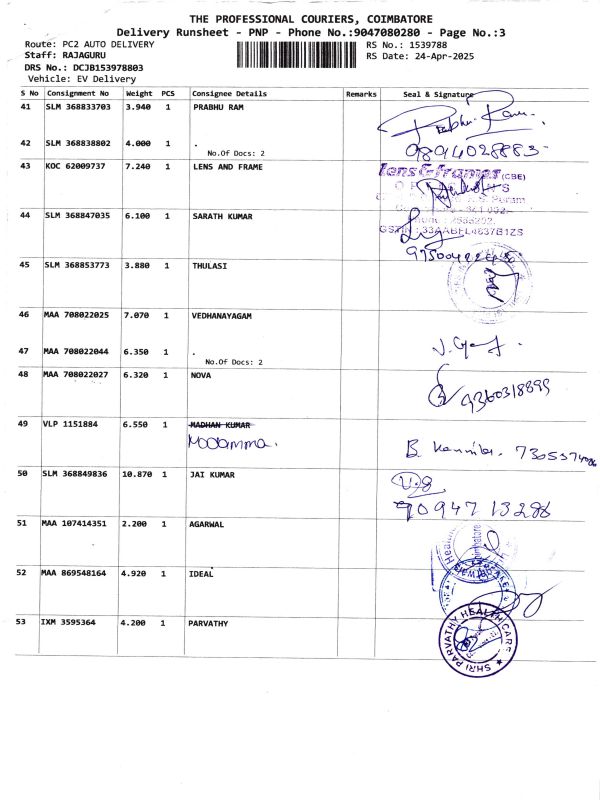 THE PROFESSIONAL COURIERS, COIMBATORE
Delivery Runsheet - PNP - Phone No.:9047080280 - Page No.:3
Route: PC2 AUTO DELIVERY RS No.: 1539788
Staff: RAJAGURU RS Date: 24-Apr-2025
DRS No.: DCJB153978803
Vehicle: EV Delivery
S No Consignment No Weight PCS Consignee Details Remarks Seal & Signature
41 SLM 368833703 3.940 1 PRABHU RAM
42 SLM 368838802 4.000 1 .
No.Of Docs: 2 9894028883
43 KOC 62009737 7.240 1 LENS AND FRAME
Lens & Frames (CBE)
44 SLM 368847035 6.100 1 SARATH KUMAR
45 SLM 368853773 3.880 1 THULASI
46 MAA 708022025 7.070 1 VEDHANAYAGAM
47 MAA 708022044 6.350 1 .
No.Of Docs: 2
48 MAA 708022027 6.320 1 NOVA
9360318899
49 VLP 1151884 6.550 1 MADHAN KUMAR
50 SLM 368849836 10.870 1 JAI KUMAR
90947 13286
51 MAA 107414351 2.200 1 AGARWAL
52 MAA 869548164 4.920 1 IDEAL
53 IXM 3595364 4.200 1 PARVATHY
SHRI PARVATHY HEALTH CARE